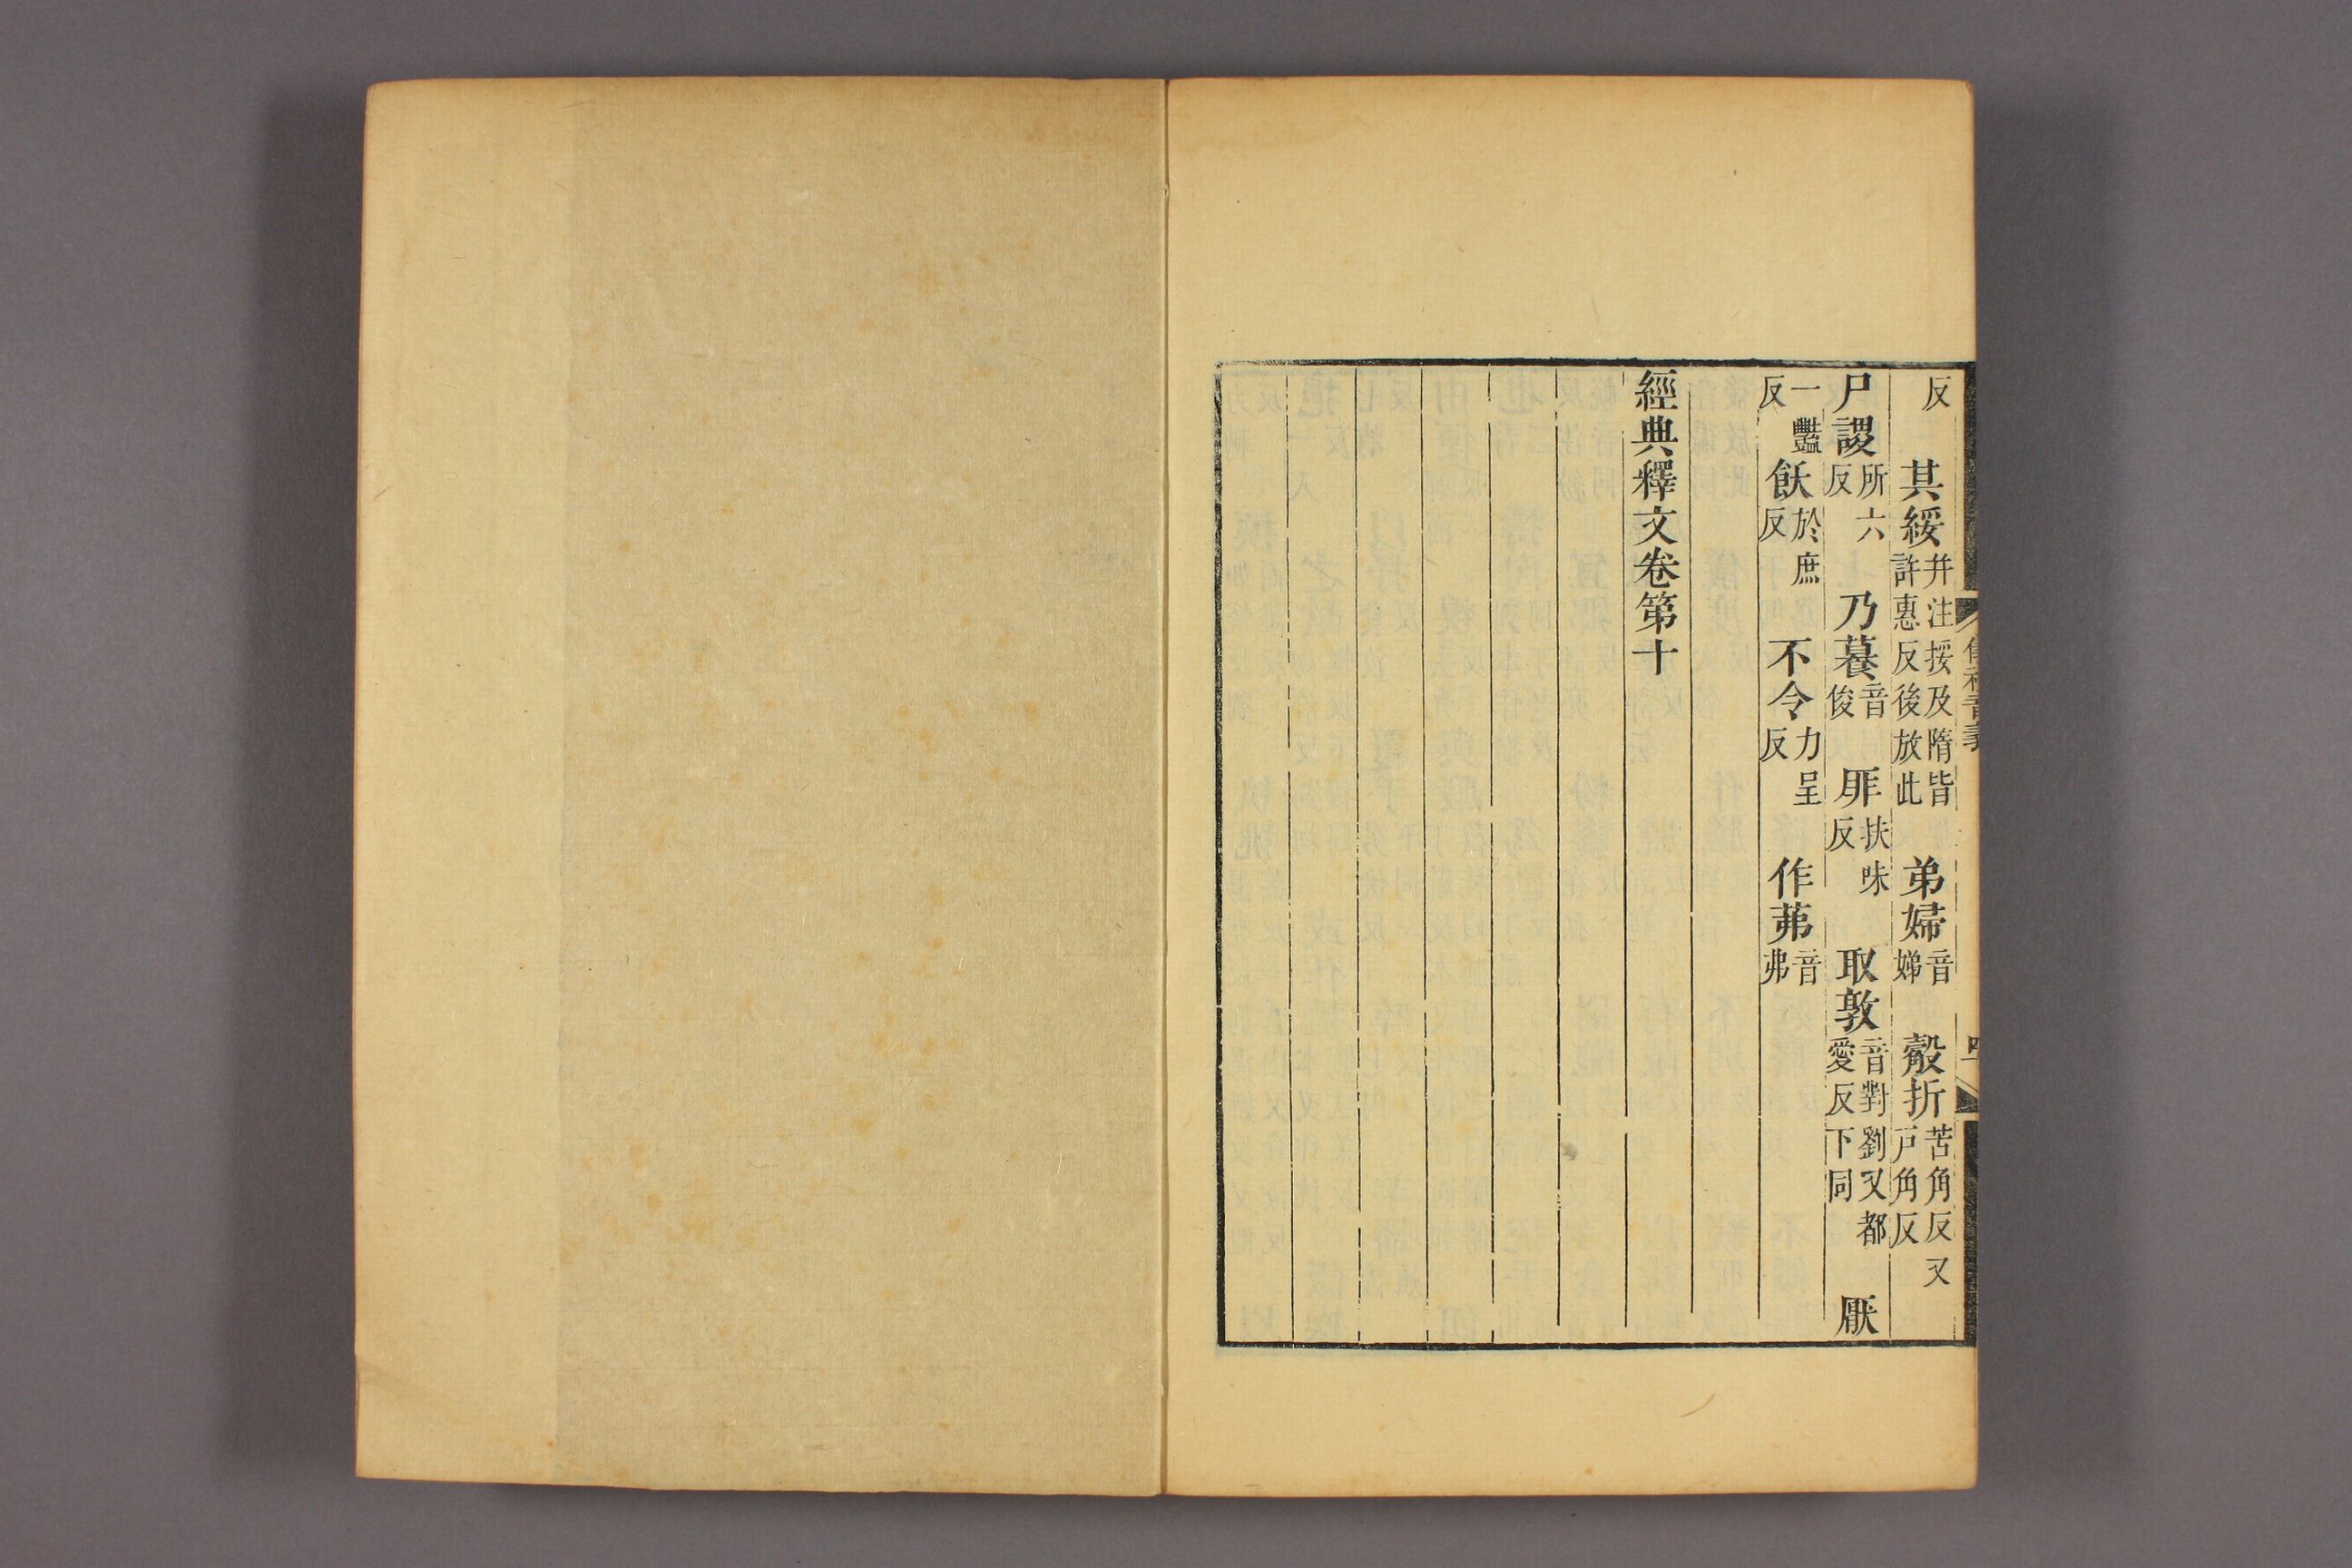 儀禮音義
反 其綏并注挼及隋皆許惠反後放此 弟婦音娣 觳折苦角反又戶角反
尸謖所六反 乃音俊 厞扶味反 取敦音對劉又都愛反下同 厭
一豔反 飫於庶反 不令力呈反 作茀音弗
經典釋文卷第十